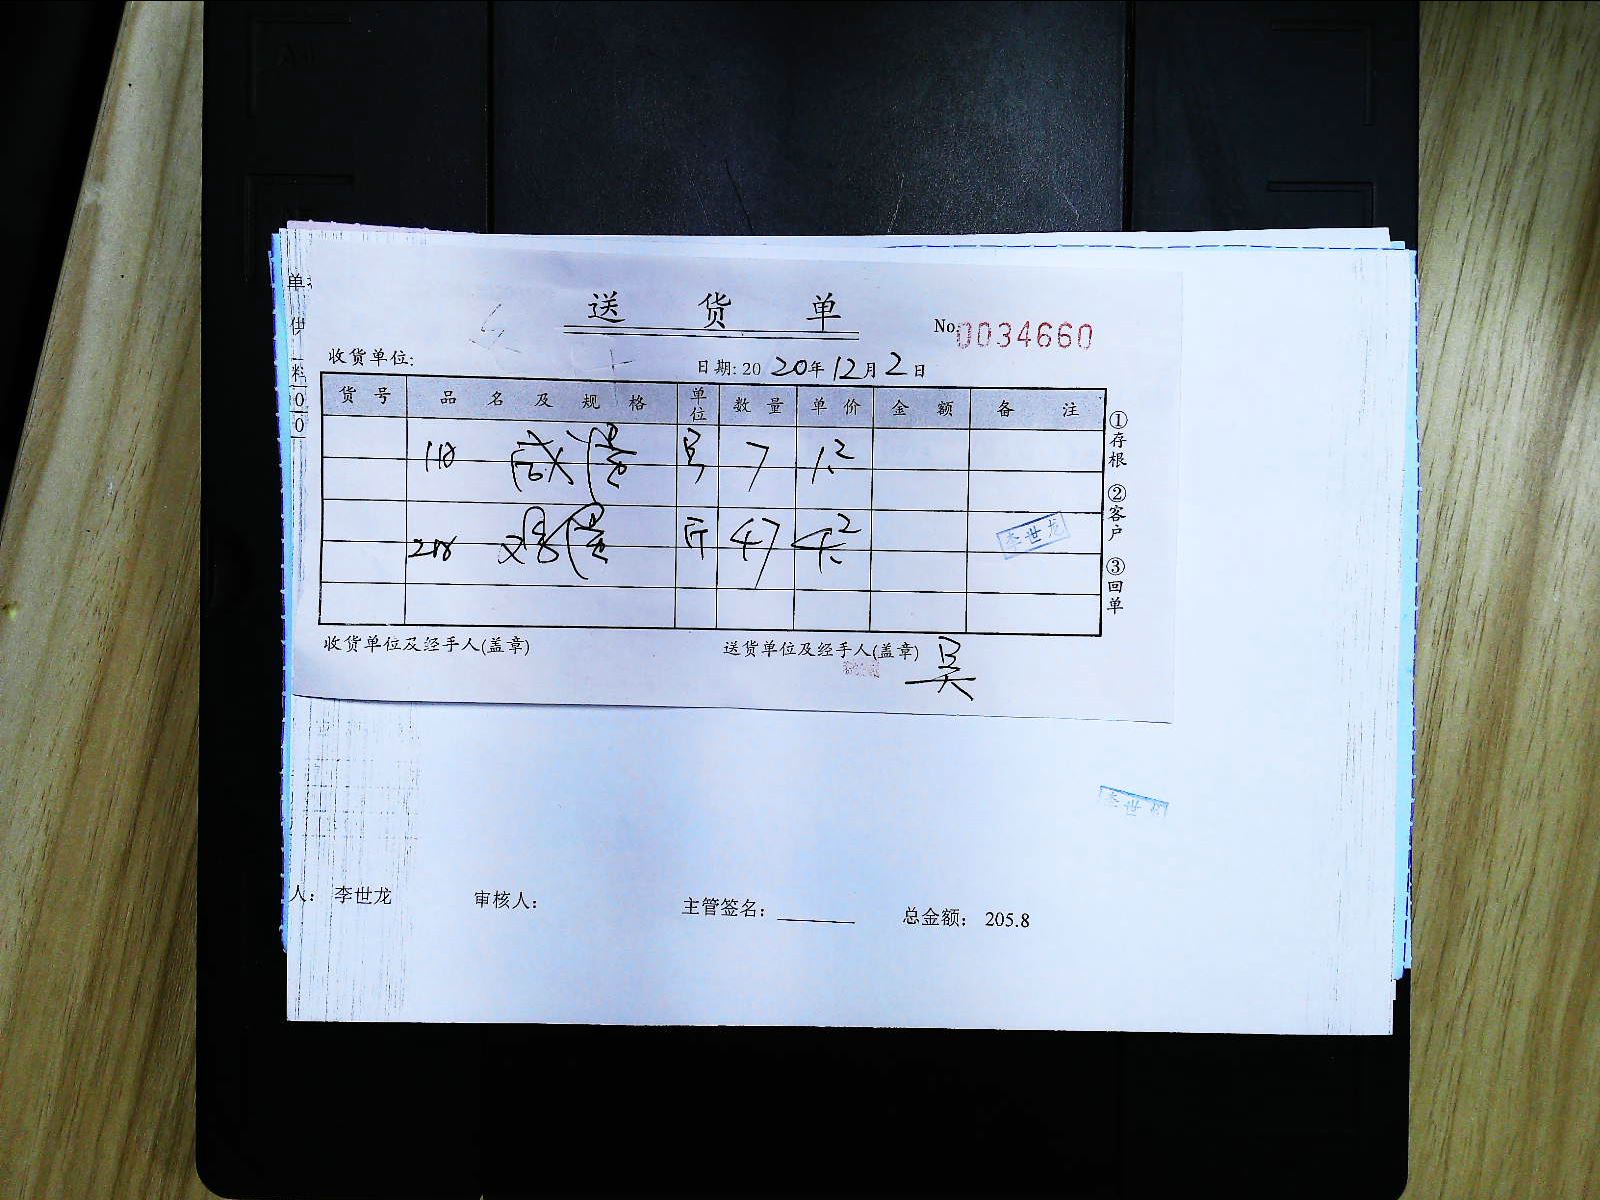 单
供
料
0
0
送 货 单
No. 0034660
收货单位:
日期: 20 20年 12月 2日
货 号 品 名 及 规 格 单位 数 量 单 价 金 额 备 注
咸蛋 只 7 1.2
鸡蛋 斤 47 4.2
李世龙
①存根 ②客户 ③回单
收货单位及经手人(盖章) 送货单位及经手人(盖章) 吴
李世龙
人: 李世龙 审核人: 主管签名: 总金额: 205.8